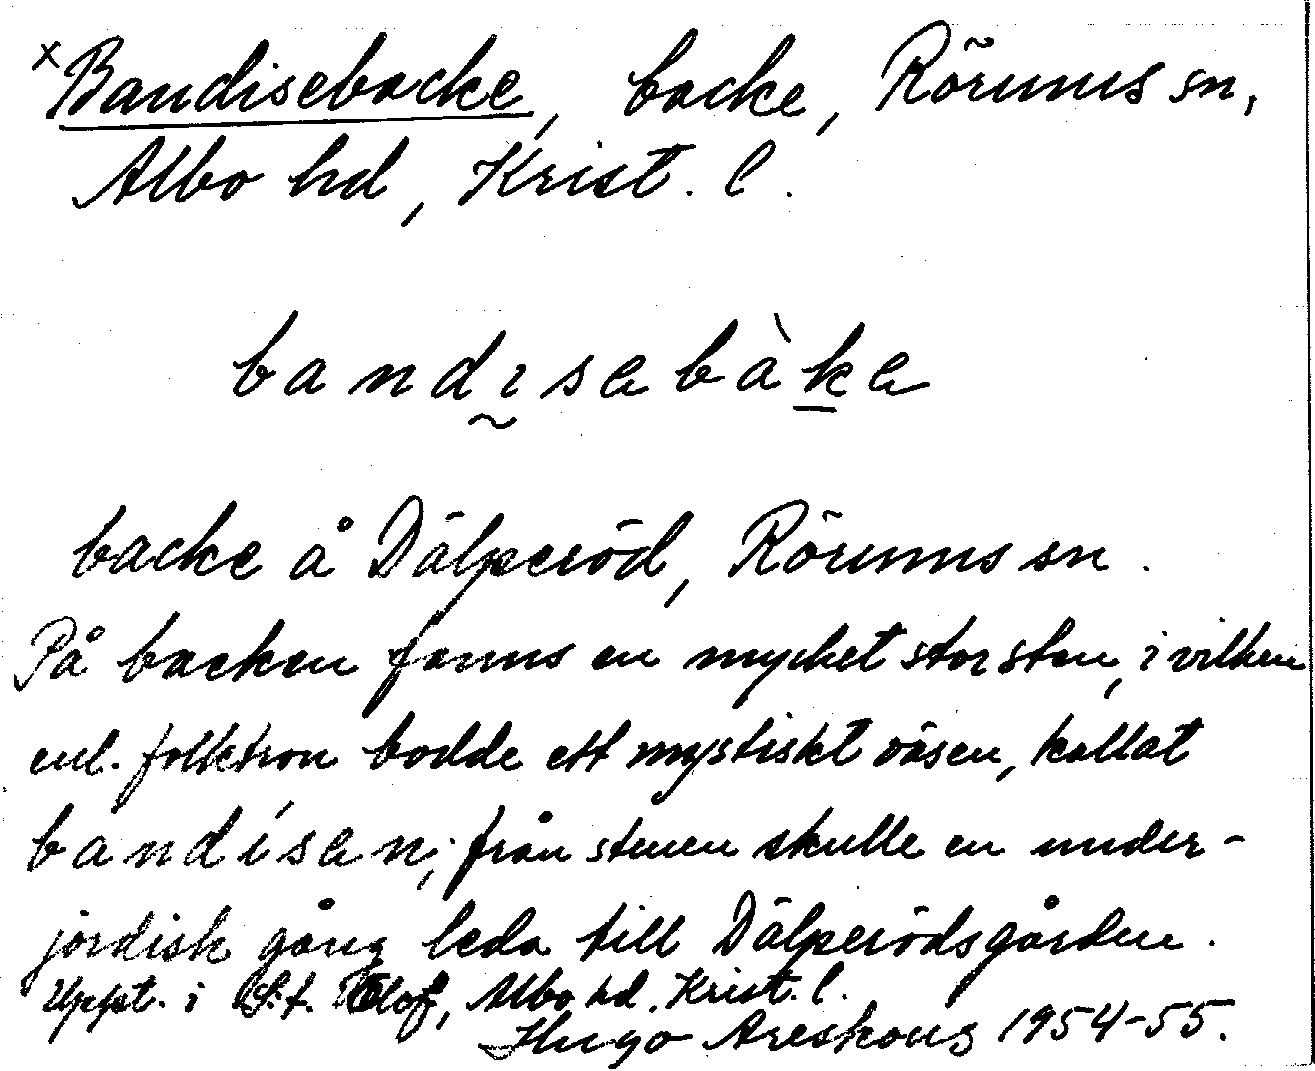 x Bandisebacke, backe, Rörums sn,
Albo hd, Krist. l.
bandısəbàkə
backe å Dälperöd, Rörums sn.
På backen fanns en mycket stor sten, i vilken
enl. folktron bodde ett mystiskt väsen, kallat
bandísən; från stenen skulle en under-
jordisk gång leda till Dälperödsgården.
Uppt. i S:t Olof, Albo hd, Krist. l.
Hugo Areskoug 1954-55.